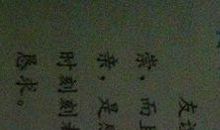 友
荣，而
亲，是
时刻刻
恳求。